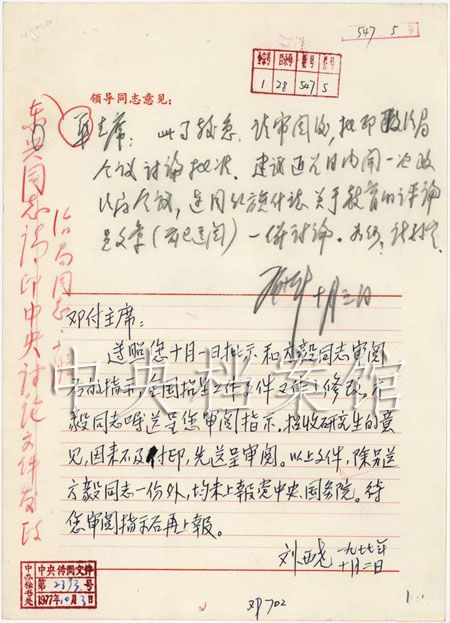 547 5 号
全宗号 目录号 卷号 件号
1 28 547 5
领导同志意见:
华主席:此事较急,请审阅后,批印政治局
会议讨论批准。建议近几日内开一次政
治局会议,连同红旗杂志关于教育的评论
员文章(前已送阅)一併讨论。如何,请核定。
十月三日
东兴同志请印中央讨论文件发政
治局同志
邓付主席:
遵照您十月一日批示和方毅同志审阅
后的指示,全国招生工作文件又作了修改,方
毅同志嘱送呈您审阅指示。招收研究生的意
见,因来不及付印,先送呈审阅。以上文件,除另送
方毅同志一份外,均未上报党中央、国务院。待
您审阅指示后再上报。
刘西尧 一九七七年
十月二日
中央档案馆
中办秘书处
中央传阅文件
第2393号
1977年10月3日
邓702